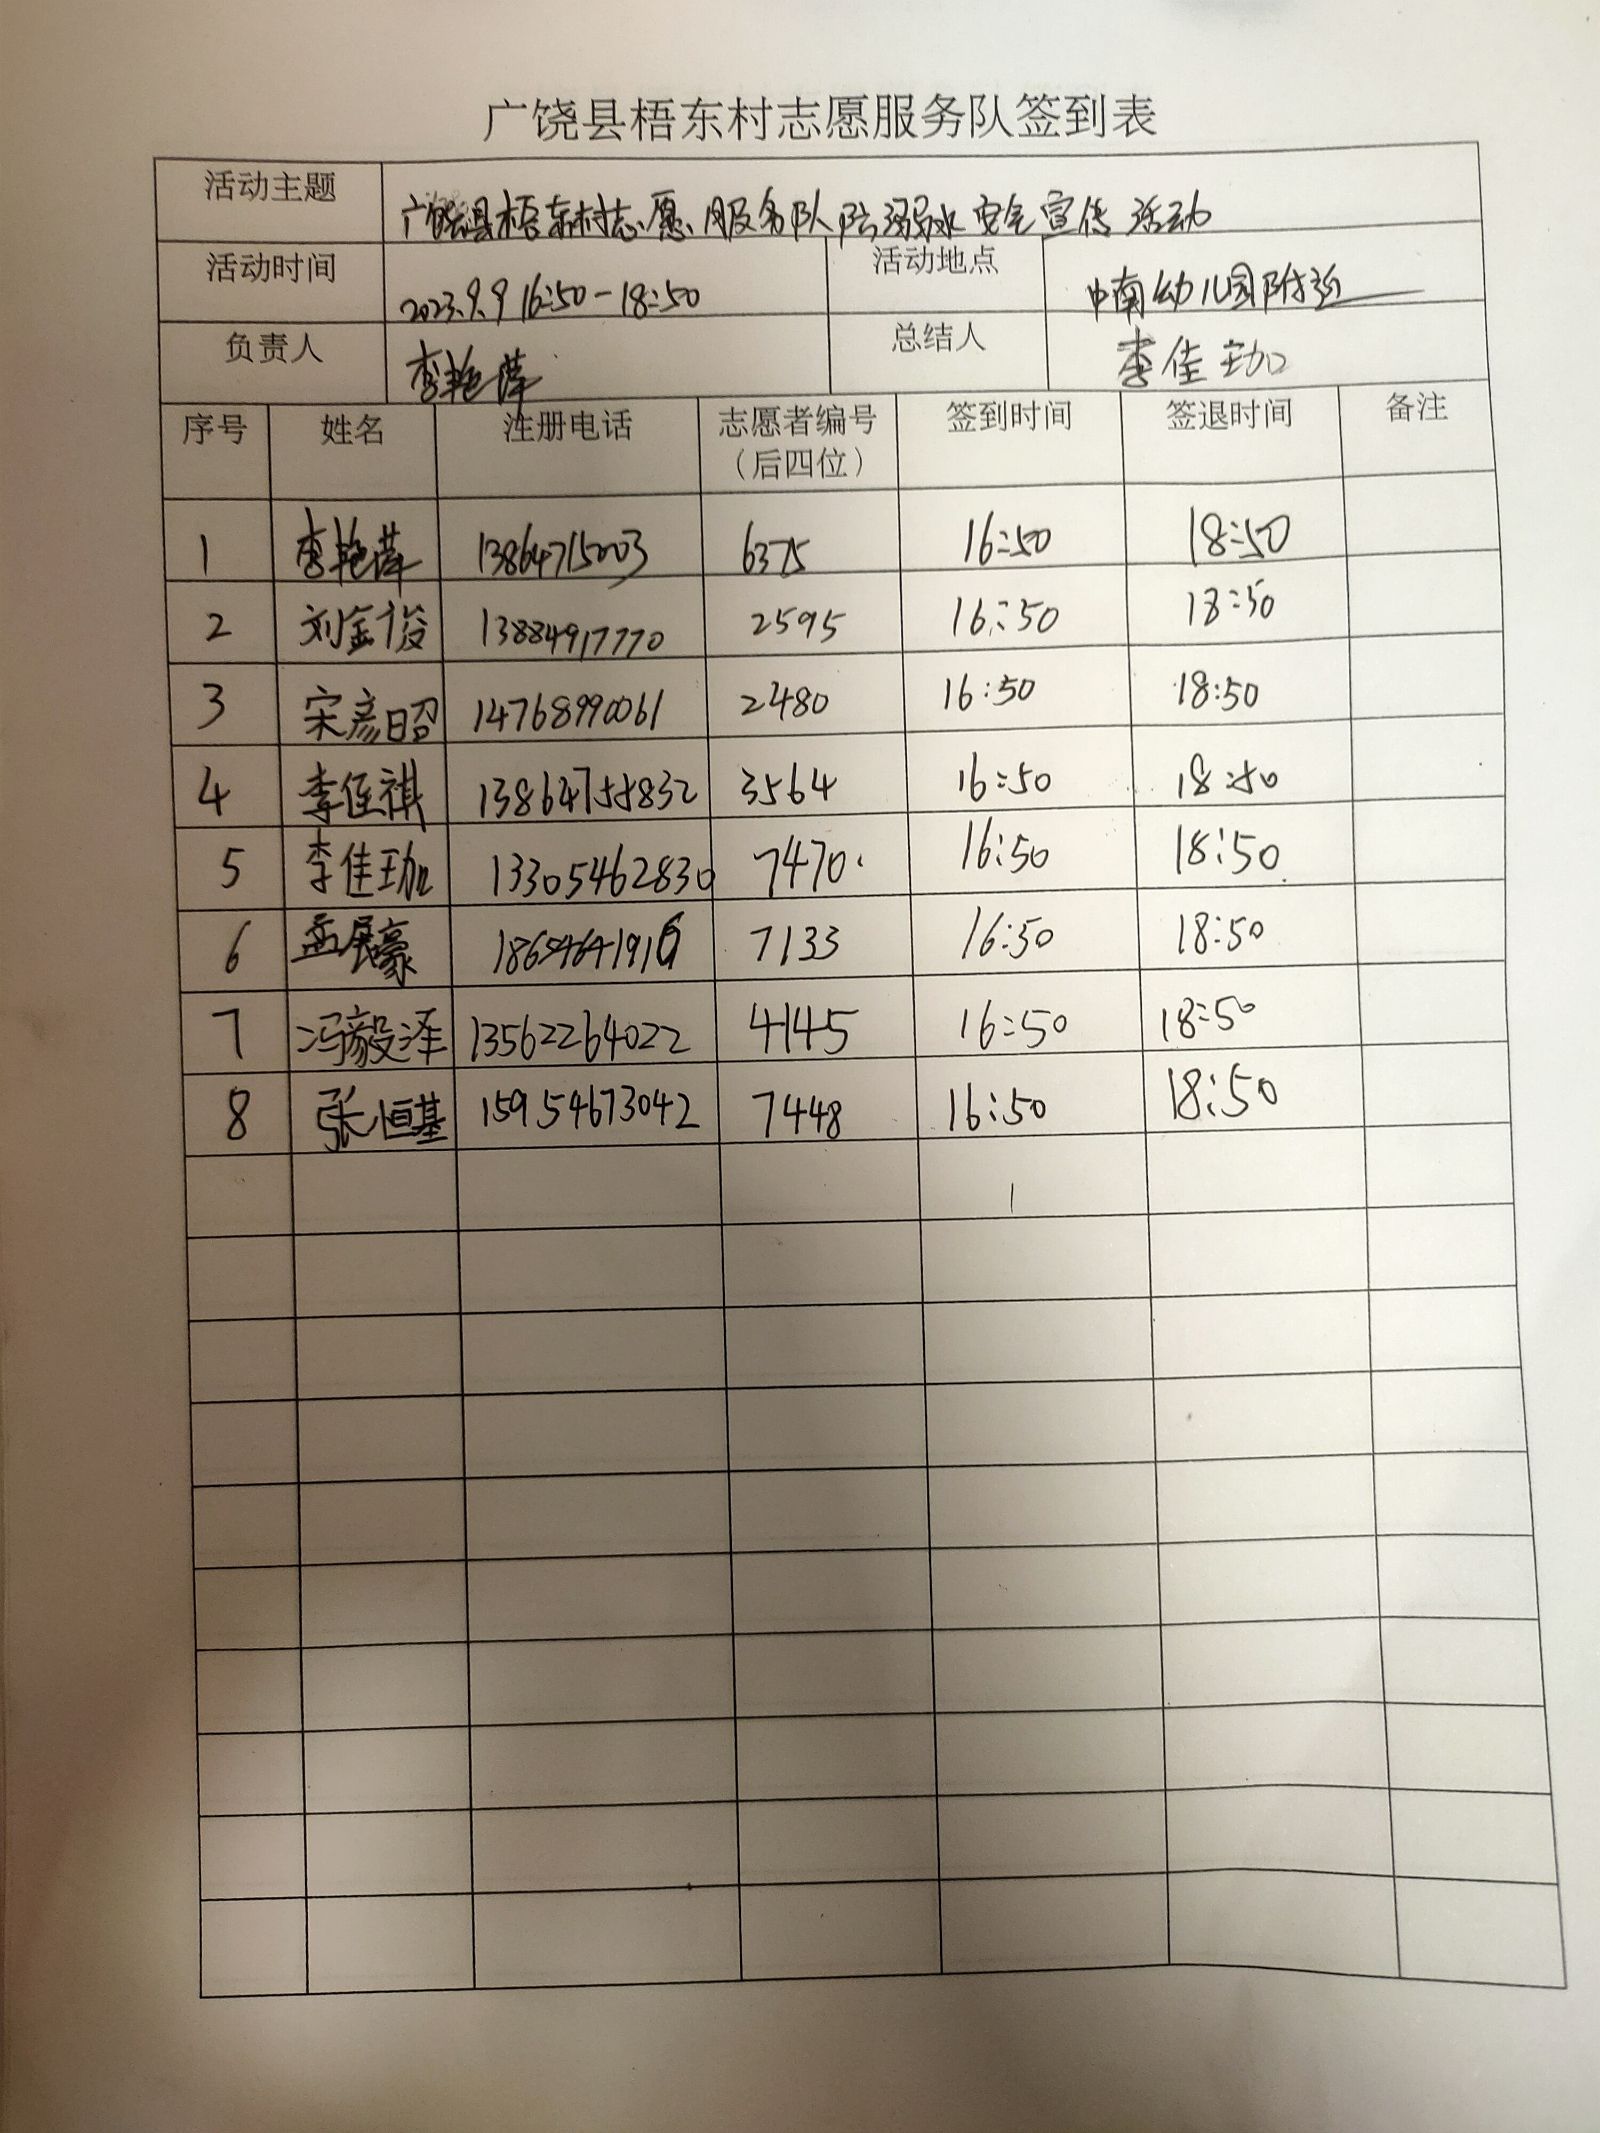 广饶县梧东村志愿服务队签到表
活动主题 广饶县梧东村志愿服务队防溺水安全宣传活动
活动时间 2023.9.9 16:50-18:50 活动地点 中南幼儿园附近
负责人 李艳萍 总结人 李佳珈
序号 姓名 注册电话 志愿者编号 签到时间 签退时间 备注
（后四位）
1 李艳萍 13864715003 6375 16:50 18:50
2 刘金俊 13884917770 2595 16:50 18:50
3 宋彦昭 14768990061 2480 16:50 18:50
4 李佳祺 13864755832 3564 16:50 18:50
5 李佳珈 13305462830 7470. 16:50 18:50
6 孟展豪 7133 16:50 18:50
7 冯毅泽 13562264022 4145 16:50 18:50
8 张恒基 15954673042 7448 16:50 18:50